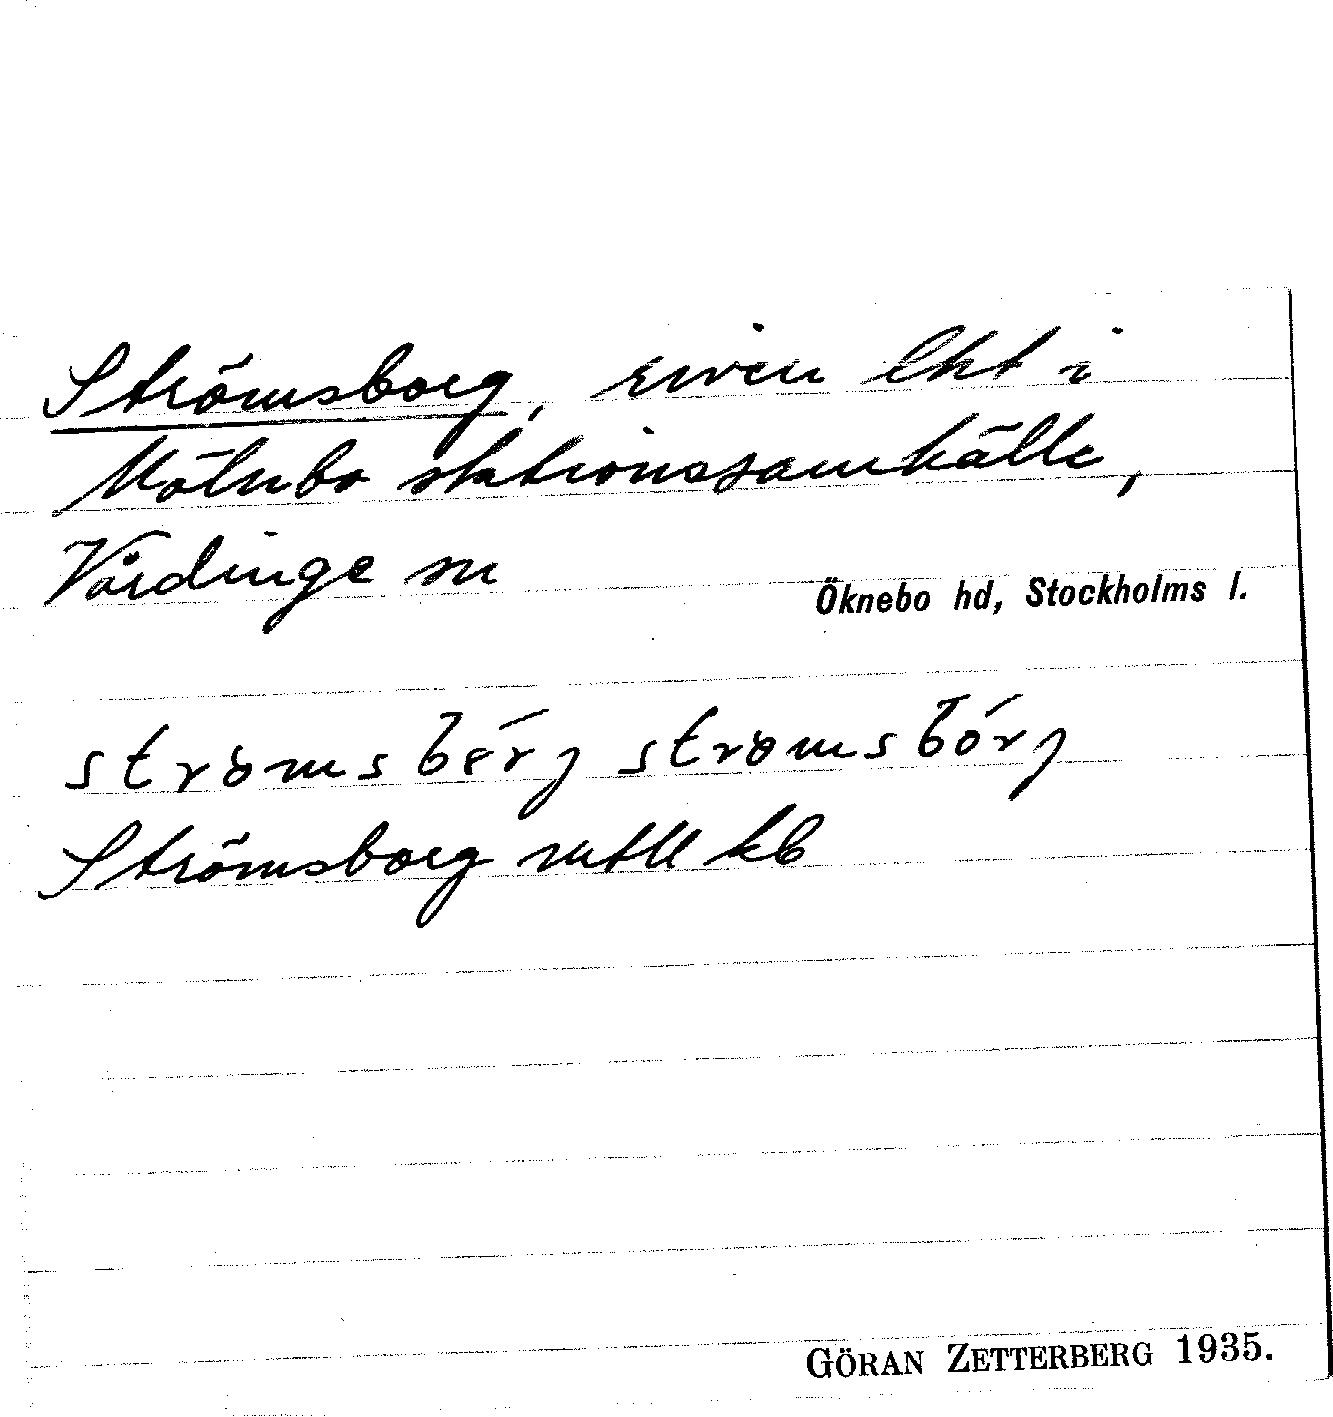 Strömsborg, riven lht i
Mölnbo stationssamhälle,
Vårdinge sn
Öknebo hd, Stockholms l.
Strömsborg mtll kb
GÖRAN ZETTERBERG 1935.